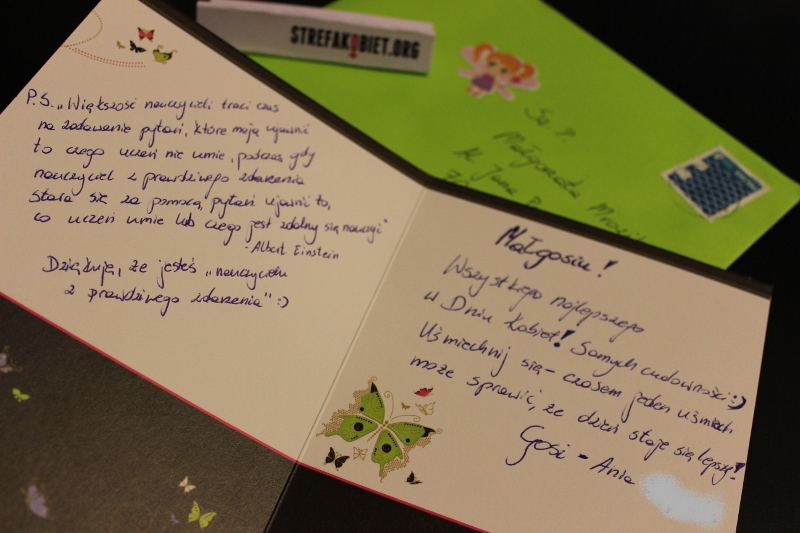 STREFAKOBIET.ORG
Sz. P.
Małgorzata
P.S. „Większość nauczycieli traci czas
na zadawanie pytań, które mają ujawnić
to czego uczeń nie umie, podczas gdy
nauczyciel z prawdziwego zdarzenia
stara się za pomocą pytań ujawnić to,
co uczeń umie lub czego jest zdolny się nauczyć"
- Albert Einstein
Dziękuję, że jesteś „nauczycielem
z prawdziwego zdarzenia" :)
Małgosiu!
Wszystkiego najlepszego
z Dniu Kobiet! Samych cudowności :)
Uśmiechnij się - czasem jeden uśmiech
może sprawić, że dzień staje się lepszy!
Gosi - Ania